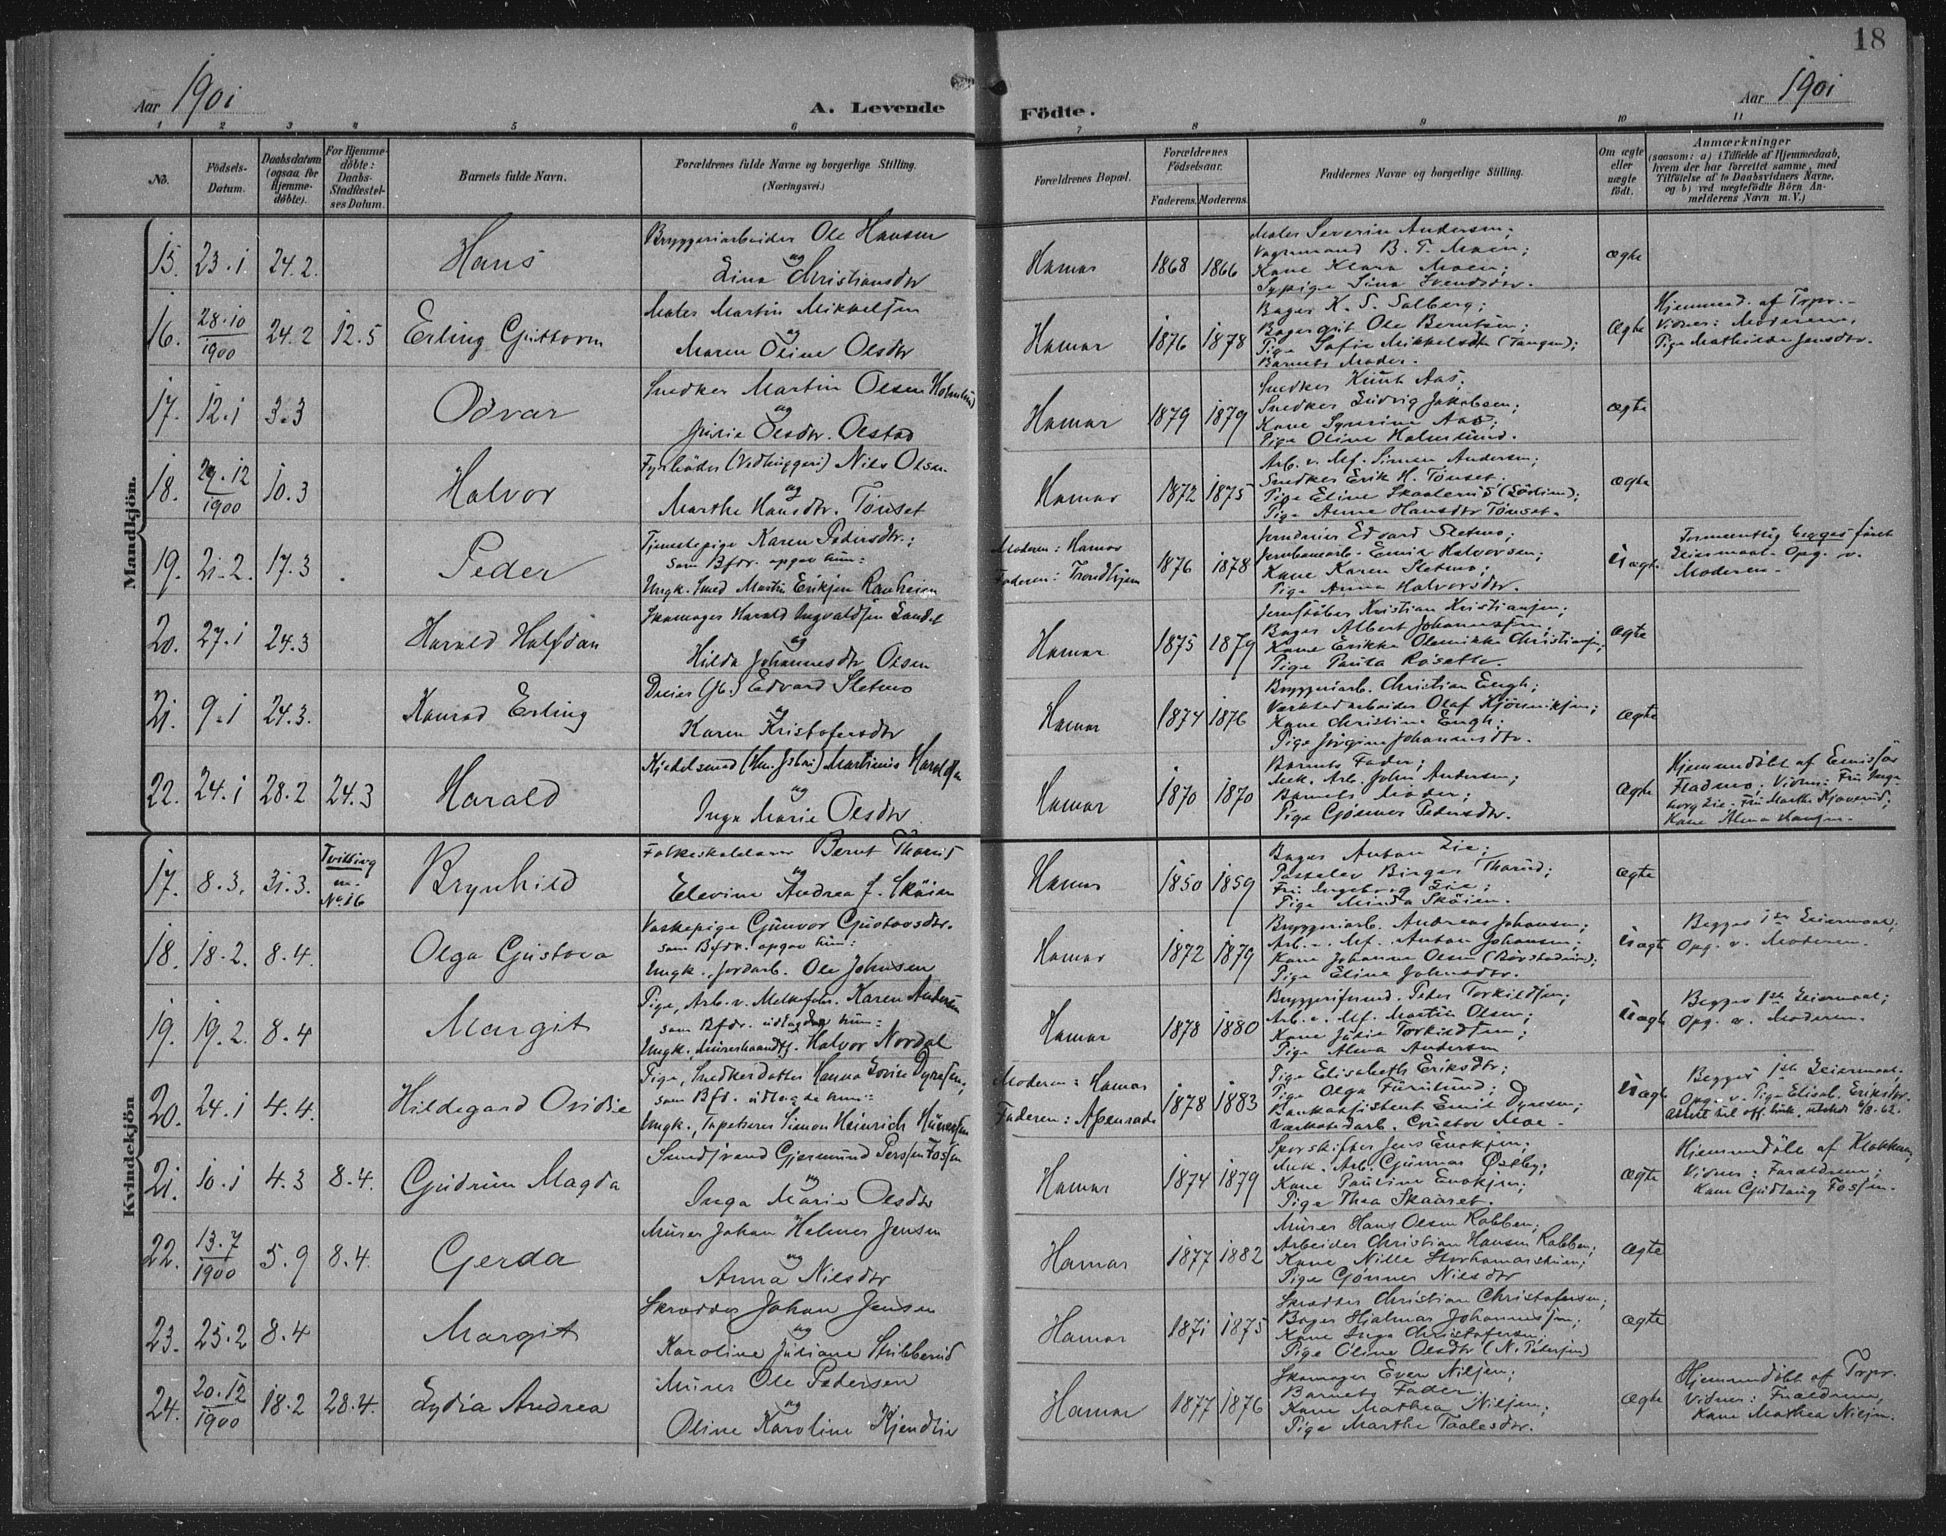 18
Aar 1901
A. Levende
Födte.
Aar 1901
1 2 3 4 5 6 7 8 9 10 11
No.
Födsels-
Datum.
Daabsdatum
(ogsaa for
Hjemme-
döbte).
For Hjemme-
döbte:
Daabs-
Stadfæstel-
ses Datum.
Barnets fulde Navn.
Forældrenes fulde Navne og borgerlige Stilling.
(Næringsvei.)
Forældrenes Bopæl.
Forældrenes
Födselsaar.
Faderens. Moderens.
Faddernes Navne og borgerlige Stilling.
Om ægte
eller
uægte
födt.
Anmærkninger
(saasom: a) i Tilfælde af Hjemmedaab,
hvem der har forrettet samme, med
Tilföielse af to Daabsvidners Navne,
og b) ved uægtefödte Börn An-
melderens Navn m. V.)
Mandkjön.
15. 23.1 24.2. Hans
Bryggeriarbeider Ole Hansen
og
Lina Christiansdtr
Hamar 1868 1866
Maler Severin Andersen;
Vognmand B. T. Moen;
Kone Klara Moen;
Sypige Lina Svendsdtr.
ægte
16. 28.10
1900 24.2 12.5 Erling Guttorm
Maler Martin Mikkelsen
og
Maren Oline Olsdtr
Hamar 1876 1878
Bager K. S. Solberg;
Bagersv. Ole Berntsen;
Pige Sofie Mikkelsdtr (Tangen);
Barnets Moder.
Ægte
Hjemmed. af Jrpr.
Vidner: Moderen,
Pige Mathilde Jensdtr.
17. 12.1 3.3 Odvar
Snedker Martin Olsen Holmlund
og
Olsdtr. Olstad
Hamar 1879 1879
Snedker Knut Aas;
Snedker Ludvig Jakobsen;
Kone Syverine Aas;
Pige Oline Holmlund.
ægte
18. 29.12
1900 10.3 Halvor
Fyrböder (Vedhuggeri) Nils Olsen
og
Marthe Hansdtr. Tönset
Hamar 1872 1875
Arb. v. Mf. Simen Andersen;
Snedker Erik H. Tönset;
Pige Eline Skaalerud
Pige Anne Hansdtr Tönset.
ægte
19. 21.2. 17.3 Peder
Tjenestepige Karen Pedersdtr.;
som Bfdr. opgav hun:
Ungk. Smed Martin Eriksen Ranheim
Moderen: Hamar
Faderen: Trondhjem 1876 1878
Jerndreier Edvard Sletmo;
Jernbanearb. Emil Halvorsen;
Kone Karen Sletmo;
Pige Anna Halvorsdtr.
Uægte
Formentlig begges förste
Leiermaal. Opg. v.
Moderen.
20. 27.1 24.3 Harald Halfdan
Skomager Harald Ingvaldsen Sandet
og
Hilda Johannesdtr Olsen
Hamar 1875 1879
Jernstöber Kristian Kristiansen;
Bager Albert Johannessen;
Kone Erikka Olemikke Christiansen;
Pige Paula Rosette.
ægte
21. 9.1 24.3. Konrad Erling
Dreier (Jb.) Edvard Sletmo
og
Karen Kristofersdtr
Hamar 1874 1876
Bryggeriarb. Christian Engh;
Værkstedarbeider Olaf
Kone Christine Engh;
Pige Jörgine Johannesdtr.
ægte
22. 24.1 28.2 24.3 Harald
Kjedelsmed Martinius Haraldsen
og
Inga Marie Olsdtr
Hamar 1870 1870
Barnets Fader;
Mek. Arb. John Andersen;
Barnets Moder;
Pige Gjönner Pedersdtr.
Ægte
Hjemmedöbt af Emissær
Fladmo; Vidner: Fru Inge-
borg Lie. Fru Marthe
Kone Alma
Kvindekjön
17. 8.3. 31.3. Tvilling
m.
No. 16 Brynhild
Folkeskolelærer Bernt Thorud
og
Elevine Andrea f. Sköien
Hamar 1850 1859
Bager Anton Lie;
Postelev Birger Thorud;
Fru Ingeborg Lie;
Pige Minda Sköien.
ægte
18. 18.2. 8.4. Olga Gustava
Vaskepige Gunvor Gustavsdtr.
som Bfdr. opgav hun:
Ungk. Jordarb. Ole Johnsen
Hamar 1872 1879
Bryggeriarb. Andreas Johansen;
Arb. v. Mf. Anton Johansen;
Kone Johanne Olsen
Pige Eline Johnsdtr.
Uægte
Begges 1ste Leiermaal;
Opg. v. Moderen.
19. 19.2. 8.4 Margit
Pige, Arb. v. Melkefabr. Karen Andersen
som Bfdr. udlagde hun:
Ungk. Murerhaandl. Halvor Nordal
Hamar 1878 1880
Bryggerisvend Peter Torkildsen;
Arb. v. Mf. Martin Olsen;
Kone Julie Torkildsen;
Pige Alma Andersen
Uægte
Begges 1ste Leiermaal;
Opg. v. Moderen.
20. 24.1 4.4. Hildegard Ovidie
Pige, Snedkerdatter Hanna Lovise Dyresen;
som Bfd. udlagde hun:
Ungk., Tapetserer Simon Heinrich
Moderen: Hamar
Faderen: Apenrade 1878 1883
Pige Elisabeth Eriksdtr;
Pige Olga Furulund;
Bankassistent Emil Dyresen;
Værkstedarb. Gustav Moe.
Uægte
Begges 1ste Leiermaal.
Opg. v. Pige Elisab. Eriksdtr.
Attest til off. bruk, utstedt 6/8.62.
21. 10.1 4.3 8.4. Gudrun Magda
Smedsvend Gjermund Perssen Fossen
og
Inga Marie Olsdtr
Hamar 1874 1879
Sporskifter Jens Enoksen;
Mek. Arb. Gunnar Østby;
Kone Pauline Enoksen;
Pige Thea Skaaret.
ægte
Hjemmedöbt af Klokkeren,
Vidner: Forældrene;
Kone Gudlaug Fossen.
22. 13.7
1900 5.9 8.4. Gerda
Murer Johan Helmer Jensen
og
Anna Nilsdtr
Hamar 1877 1882
Murer Hans Olsen Kobben;
Arbeider Christian Hansen Kobben;
Kone Nille Storhamarstuen;
Pige Gjönner Nilsdtr
ægte
23. 25.2 8.4 Margit
Skrædder Johan Jensen
og
Karoline Juliane Stibberud
Hamar 1871 1875
Skrædder Christian Christofersen;
Bager Hjalmar Johannessen;
Kone Inga Christofersen;
Pige Oline Olsdtr (N. Petersen)
ægte
24. 20.12
1900 18.2 28.4. Lydia Andrea
Murer Ole Pedersen
og
Oline Karoline Kjendlie
Hamar 1877 1876
Skomager Even Nilsen;
Barnets Fader.
Kone Mathea Nilsen;
Pige Marthe Paalesdtr.
Ægte
Hjemmedöbt af Jrpr.
Vidner: Forældrene,
Kone Mathea Nilsen.